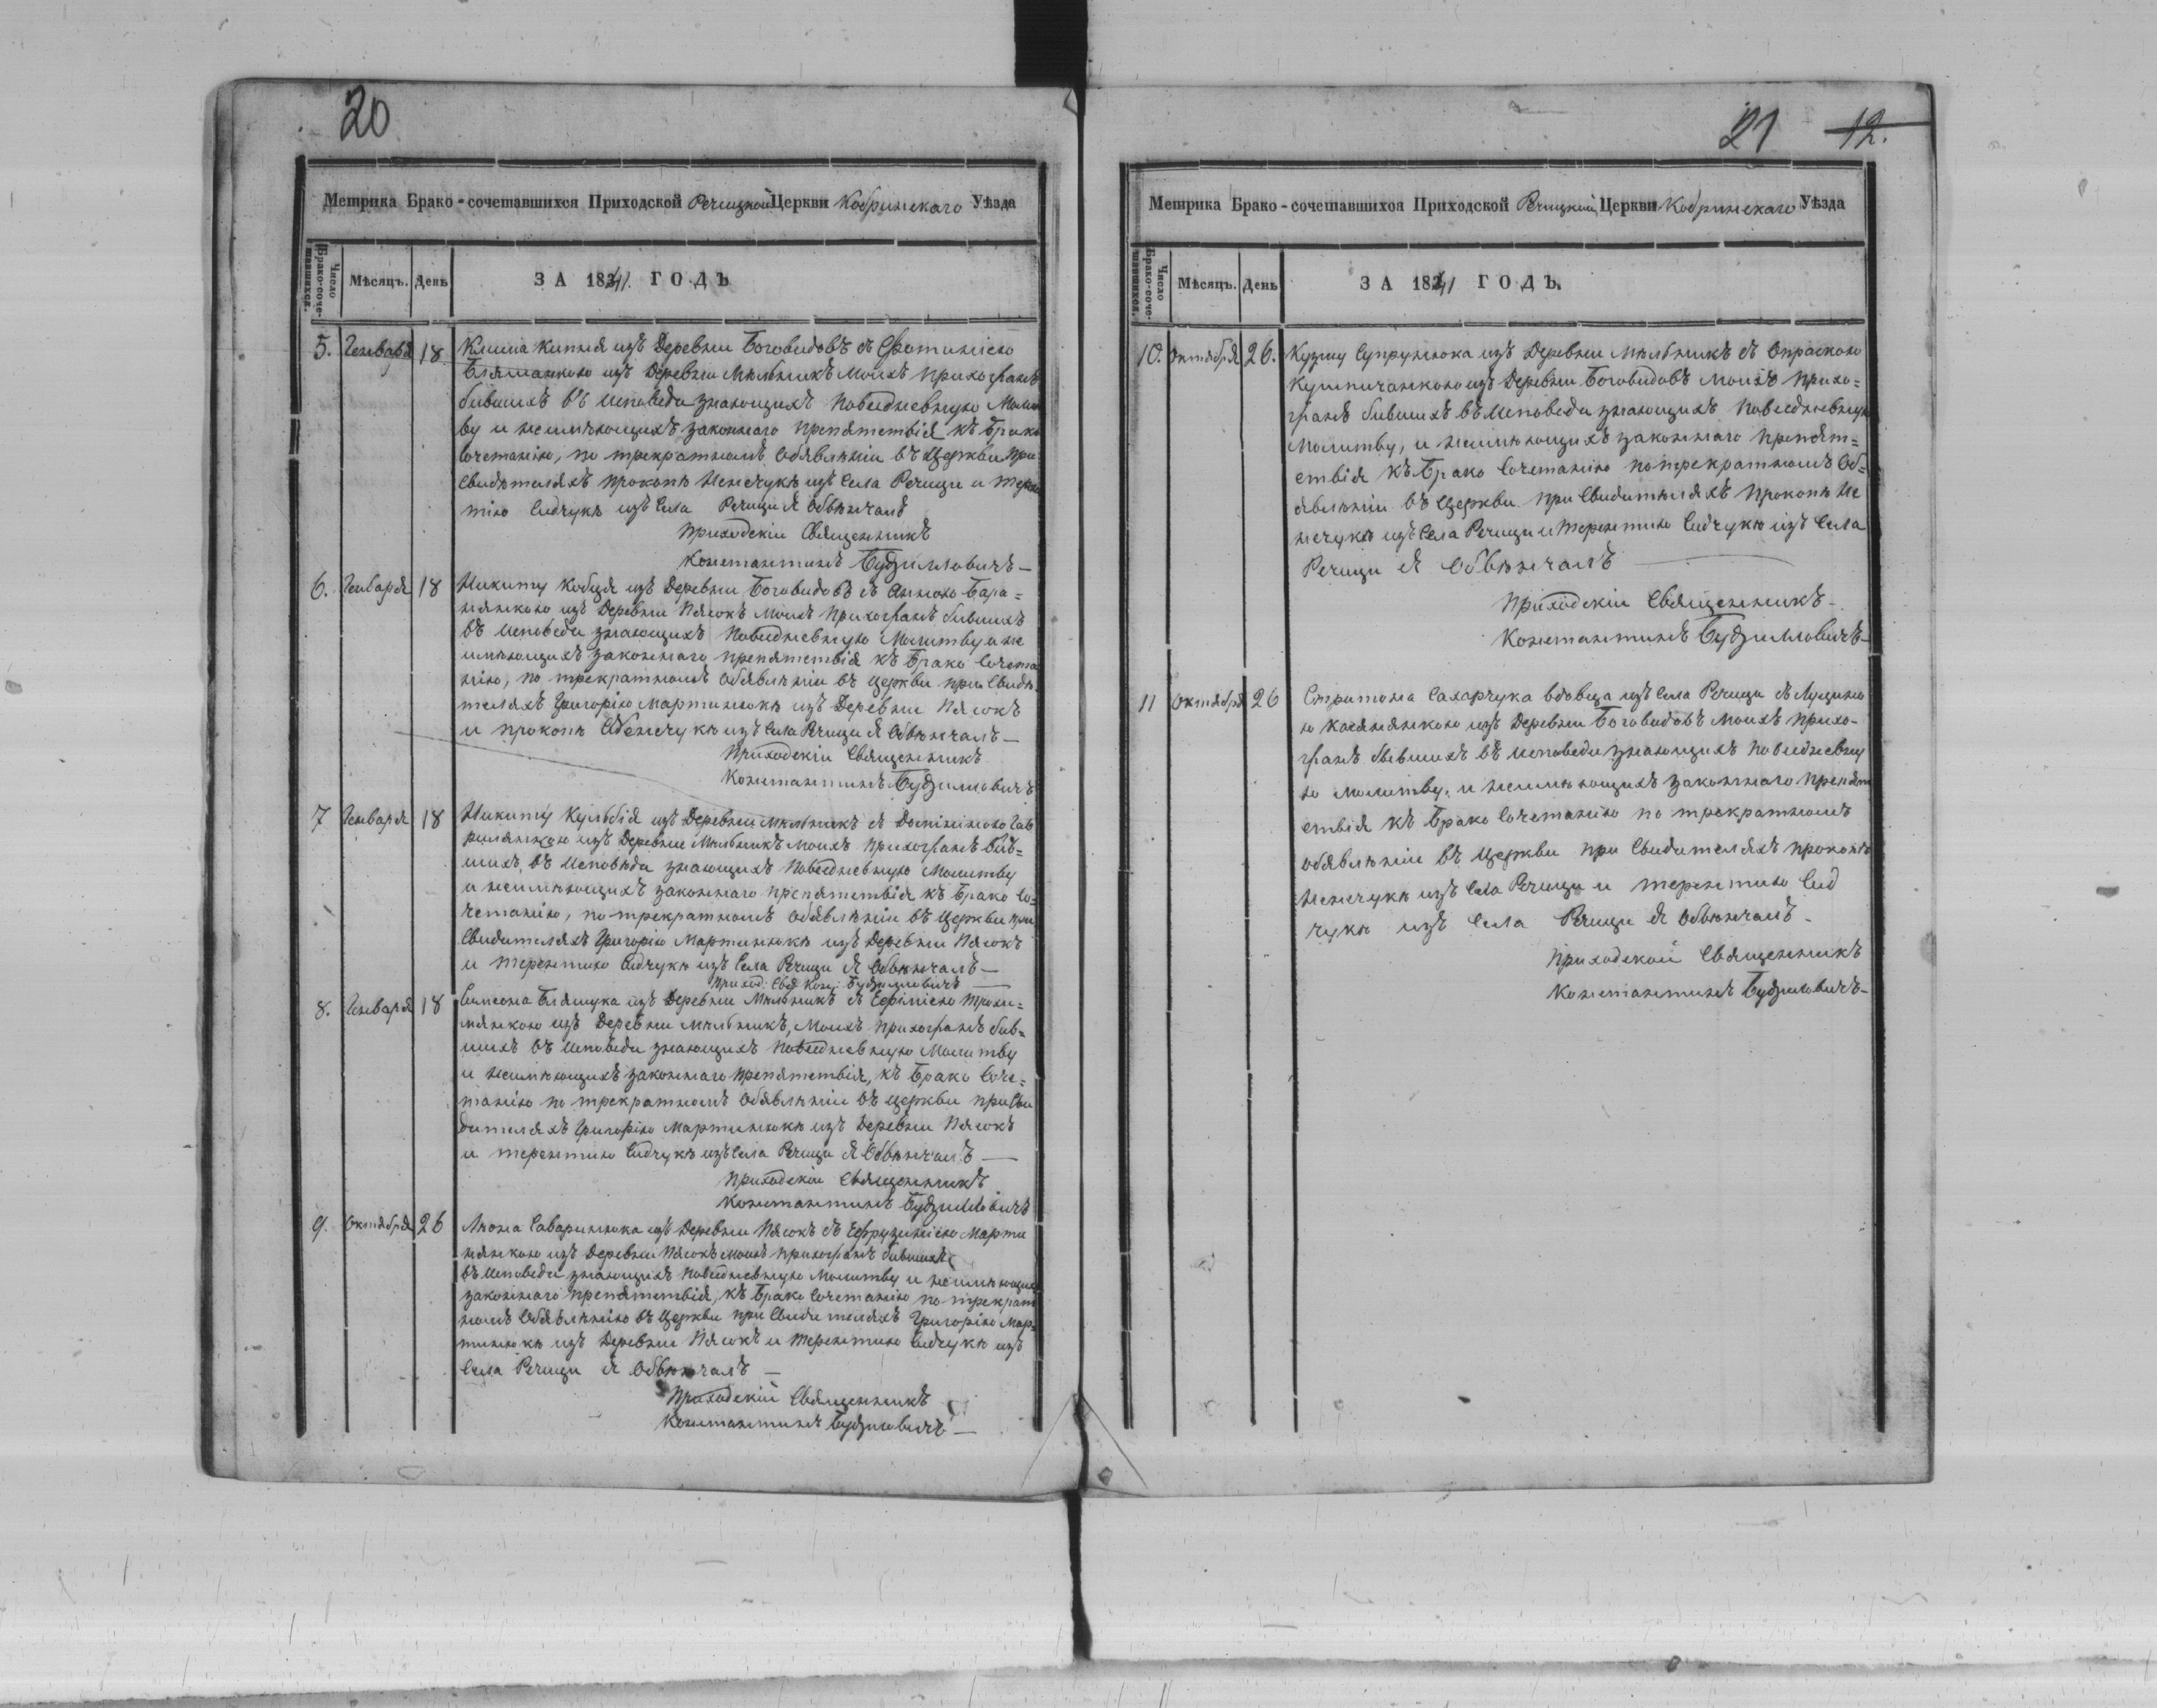 20
Метрика Брако-сочетавшихся Приходской Речицкой Церкви Кобринскаго Уѣзда
Число Брако-сочетавшихся.
Мѣсяцъ.
День
ЗА 1841. ГОДЪ
5. Генваря 18
Клима из Деревни Боговидовъ съ Фотиніею
изъ Деревни Мѣльникъ Моихъ прихожанъ
бившихъ въ Исповѣди знающихъ повседневную Молит
ву и неимѣющихъ законнаго препятствія къ Брако
сочетанію, по трекратномъ обявлѣніи въ Церкви при
Свидѣтеляхъ Прокопѣ Ненечукѣ изъ Села Речици и Терен
тію Сидчукѣ изъ Села Речици Я Обвѣнчалъ
Приходскіи Священникъ
Константинъ Будзилловичъ—
6. Генваря 18
Никиту Кобця изъ Деревни Боговидовъ съ Анною Бара=
нянкою изъ Деревни Пясокъ Моихъ Прихожанъ бившихъ
въ Исповѣди знающихъ Повседневную Молитву и не
имѣющихъ законнаго препятствія къ Брако Сочета
нію, по трекратномъ Обявлѣніи въ Церкви при Свидѣ
теляхъ Григорію Мартинюкѣ изъ Деревни Пясокъ
и Прокопѣ изъ Села Речици Я Обвѣнчалъ—
Приходскіи Священникъ
Константинъ Будзилловичъ
7 Генваря 18
Никиту Кульбія изъ Деревни Мѣльникъ съ Домініною Гав
рилянкою изъ Деревни Мѣльникъ Моихъ Прихожанъ бив=
шихъ въ Исповѣди знающихъ Повседневную Молитву
и неимѣющихъ законнаго препятствія къ Брако Со=
четанію, по трекратномъ Обявлѣніи въ Церкви при
Свидителяхъ Григорію Мартинюкѣ изъ Деревни Пясокъ
и Терентию Сидчукѣ изъ Села Речици Я Обвѣнчалъ—
Приход: Свящ Конс: Будзилловичъ—
8. Генваря 18
Симеона Бляшука изъ Деревни Мѣльникъ съ Ефіміею Трохи=
мянкою изъ Деревни Мѣльникъ, Моихъ Прихожанъ бив=
шихъ въ Исповѣди знающихъ Повседневную Молитву
и неимѣющихъ законнаго Препятствія, къ Брако Соче=
танію по трекратномъ Обявлѣніи въ Церкви при Сви
дителяхъ Григорію Мартинюкѣ изъ Деревни Пясокъ
и Терентию Сидчукѣ изъ Села Речици Я Обвѣнчалъ—
Приходскіи Священникъ
Константинъ Будзилловичъ
9. Октября 26
Саваринюка изъ Деревни Пясокъ съ Ефрузиніею Марти
нянкою изъ Деревни Пясокъ Моихъ Прихожанъ бившихъ
въ Исповеди знающихъ Повседневную Молитву и неимѣющихъ
законнаго Препятствія, къ Брако Сочетанію по трекрат
номъ Обявлѣнію въ Церкви при Свидителяхъ Григорію Мар=
тинюкѣ изъ Деревни Пясокъ и Терентию Сидчукѣ изъ
Села Речици Я Обвѣнчалъ—
Приходскій Священникъ
Константинъ Будзиловичъ—
21 12.
Метрика Брако-сочетавшихся Приходской Речицкой Церкви Кобринскаго Уѣзда
Число Брако-сочетавшихся.
Мѣсяцъ.
День
ЗА 1841 ГОДЪ.
10. Октября 26.
Кузму Супрунюка изъ Деревни Мѣльникъ съ Опраскою
изъ Деревни Боговидовъ Моихъ прихо=
жанъ бившихъ въ Исповеди знающихъ Повседневную
Молитву, и неимѣющихъ законнаго препят=
ствія къ Брако Сочетанію по трекратномъ Об=
явлѣніи въ Церкви при Свидителяхъ Прокопѣ Не
нечукѣ изъ Села Речици и Терентию Сидчукѣ изъ Села
Речици Я Обвѣнчалъ—
Приходскіи Священникъ—
Константинъ Будзилловичъ—
11 Октября 26
Сахарчука вдовца изъ Села Речици съ Луциею
изъ Деревни Боговидовъ Моихъ прихо-
жанъ бывшихъ въ Исповеди знающихъ Повседневну
ю Молитву, и неимѣющихъ законнаго препят
ствія къ Брако Сочетанію по трекратномъ
обявлѣніи въ Церкви при Свидителяхъ Прокопѣ
Ненечукѣ изъ Села Речици и Терентию Сид
чукѣ изъ Села Речици Я Обвѣнчалъ—
Приходской Священникъ
Константинъ Будзиловичъ—